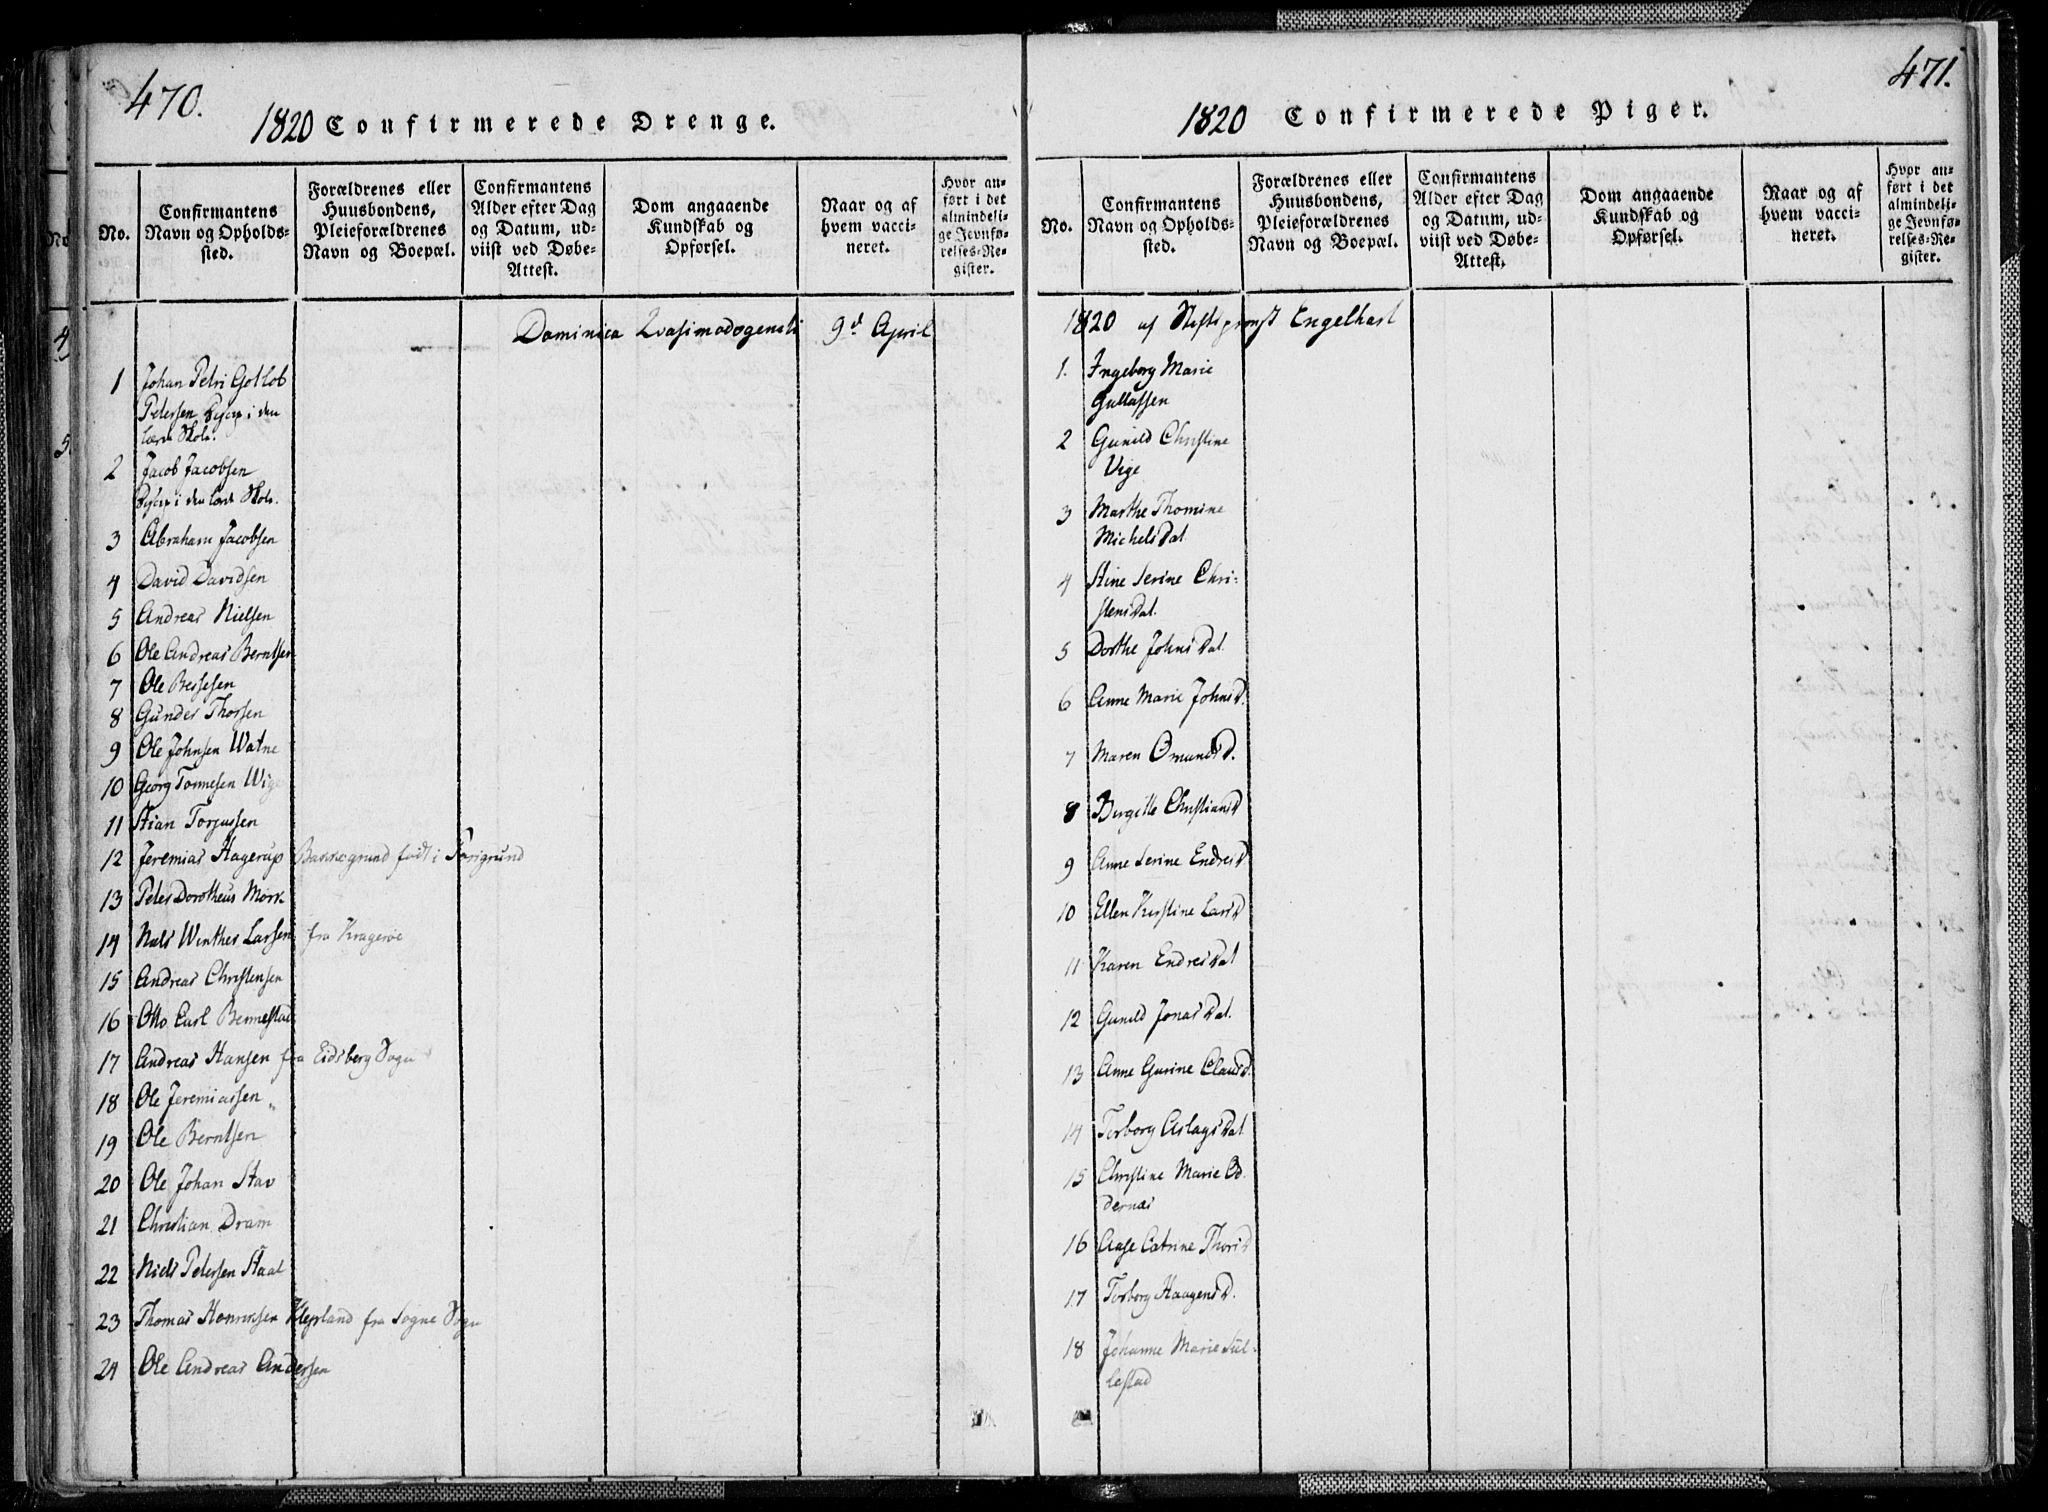 470.
1820 Confirmerede Drenge.
No.
Confirmantens
Navn og Opholds-
sted.
Forældrenes eller
Huusbondens,
Pleieforældrenes
Navn og Boepæl.
Confirmantens
Alder efter Dag
og Datum, ud-
viist ved Døbe-
Attest.
Dom angaaende
Kundskab og
Opførsel.
Naar og af
hvem vacci-
neret.
Hvor an-
ført i det
almindeli-
ge Jevnfø-
relses-Re-
gister.
Dominica Qvasimodogeniti 9d April
1 Johan Petri Gotlob
Petersen i den
lærde Skole.
2 Jacob Jacobsen
i den lærde Skole.
3 Abraham Jacobsen
4 David Davidsen
5 Andreas Nielsen
6 Ole Andreas Berntsen
7 Ole Bessesen
8 Gunder Thorsen
9 Ole Johnsen Watne
10 Georg Tønnesen Wige
11 Stian Torjussen
12 Jeremias Hagerup Bakkegrund født i Porsgrund
13 Peter Dorotheus Mørk
14 Niels Winther Larsen fra Kragerøe
15 Andreas Christensen
16 Otto Carl Bennestad
17 Andreas Hansen fra Eidsberg Sogn
18 Ole Jeremiassen
19 Ole Berntsen
20 Ole Johan Stav
21 Christian Dram
22 Niels Petersen Staal
23 Thomas Henriksen Klepland fra Sogne Sogn
24 Ole Andreas Andersen
471.
1820 Confirmerede Piger.
No.
Confirmantens
Navn og Opholds-
sted.
Forældrenes eller
Huusbondens,
Pleieforældrenes
Navn og Boepæl.
Confirmantens
Alder efter Dag
og Datum, ud-
viist ved Døbe-
Attest.
Dom angaaende
Kundskab og
Opførsel.
Naar og af
hvem vacci-
neret.
Hvor an-
ført i det
almindeli-
ge Jevnfø-
relses-Re-
gister.
1820 af Stiftsprovst Engelhart
1. Ingeborg Marie
Gullassen
2 Gunild Christine
Vige
3 Marthe Thomine
Michelsdat
4 Stine Serine Chri-
stensdat.
5 Dorthe Johnsdat.
6 Anne Marie JohnsD.
7 Maren OmundsD.
8 Birgitte ChristiansD
9 Anne Serine EndresD
10 Ellen Kirstine LarsD
11 Karen Endresdat
12 Gunild Jonasdat.
13 Anne Gurine ClausD.
14 Torborg Aslagsdat
15 Christine Marie Od
dernæs
16 Aase Catrine ThorsD
17 Torborg HaagensD.
18 Johanne Marie Sul-
lestad